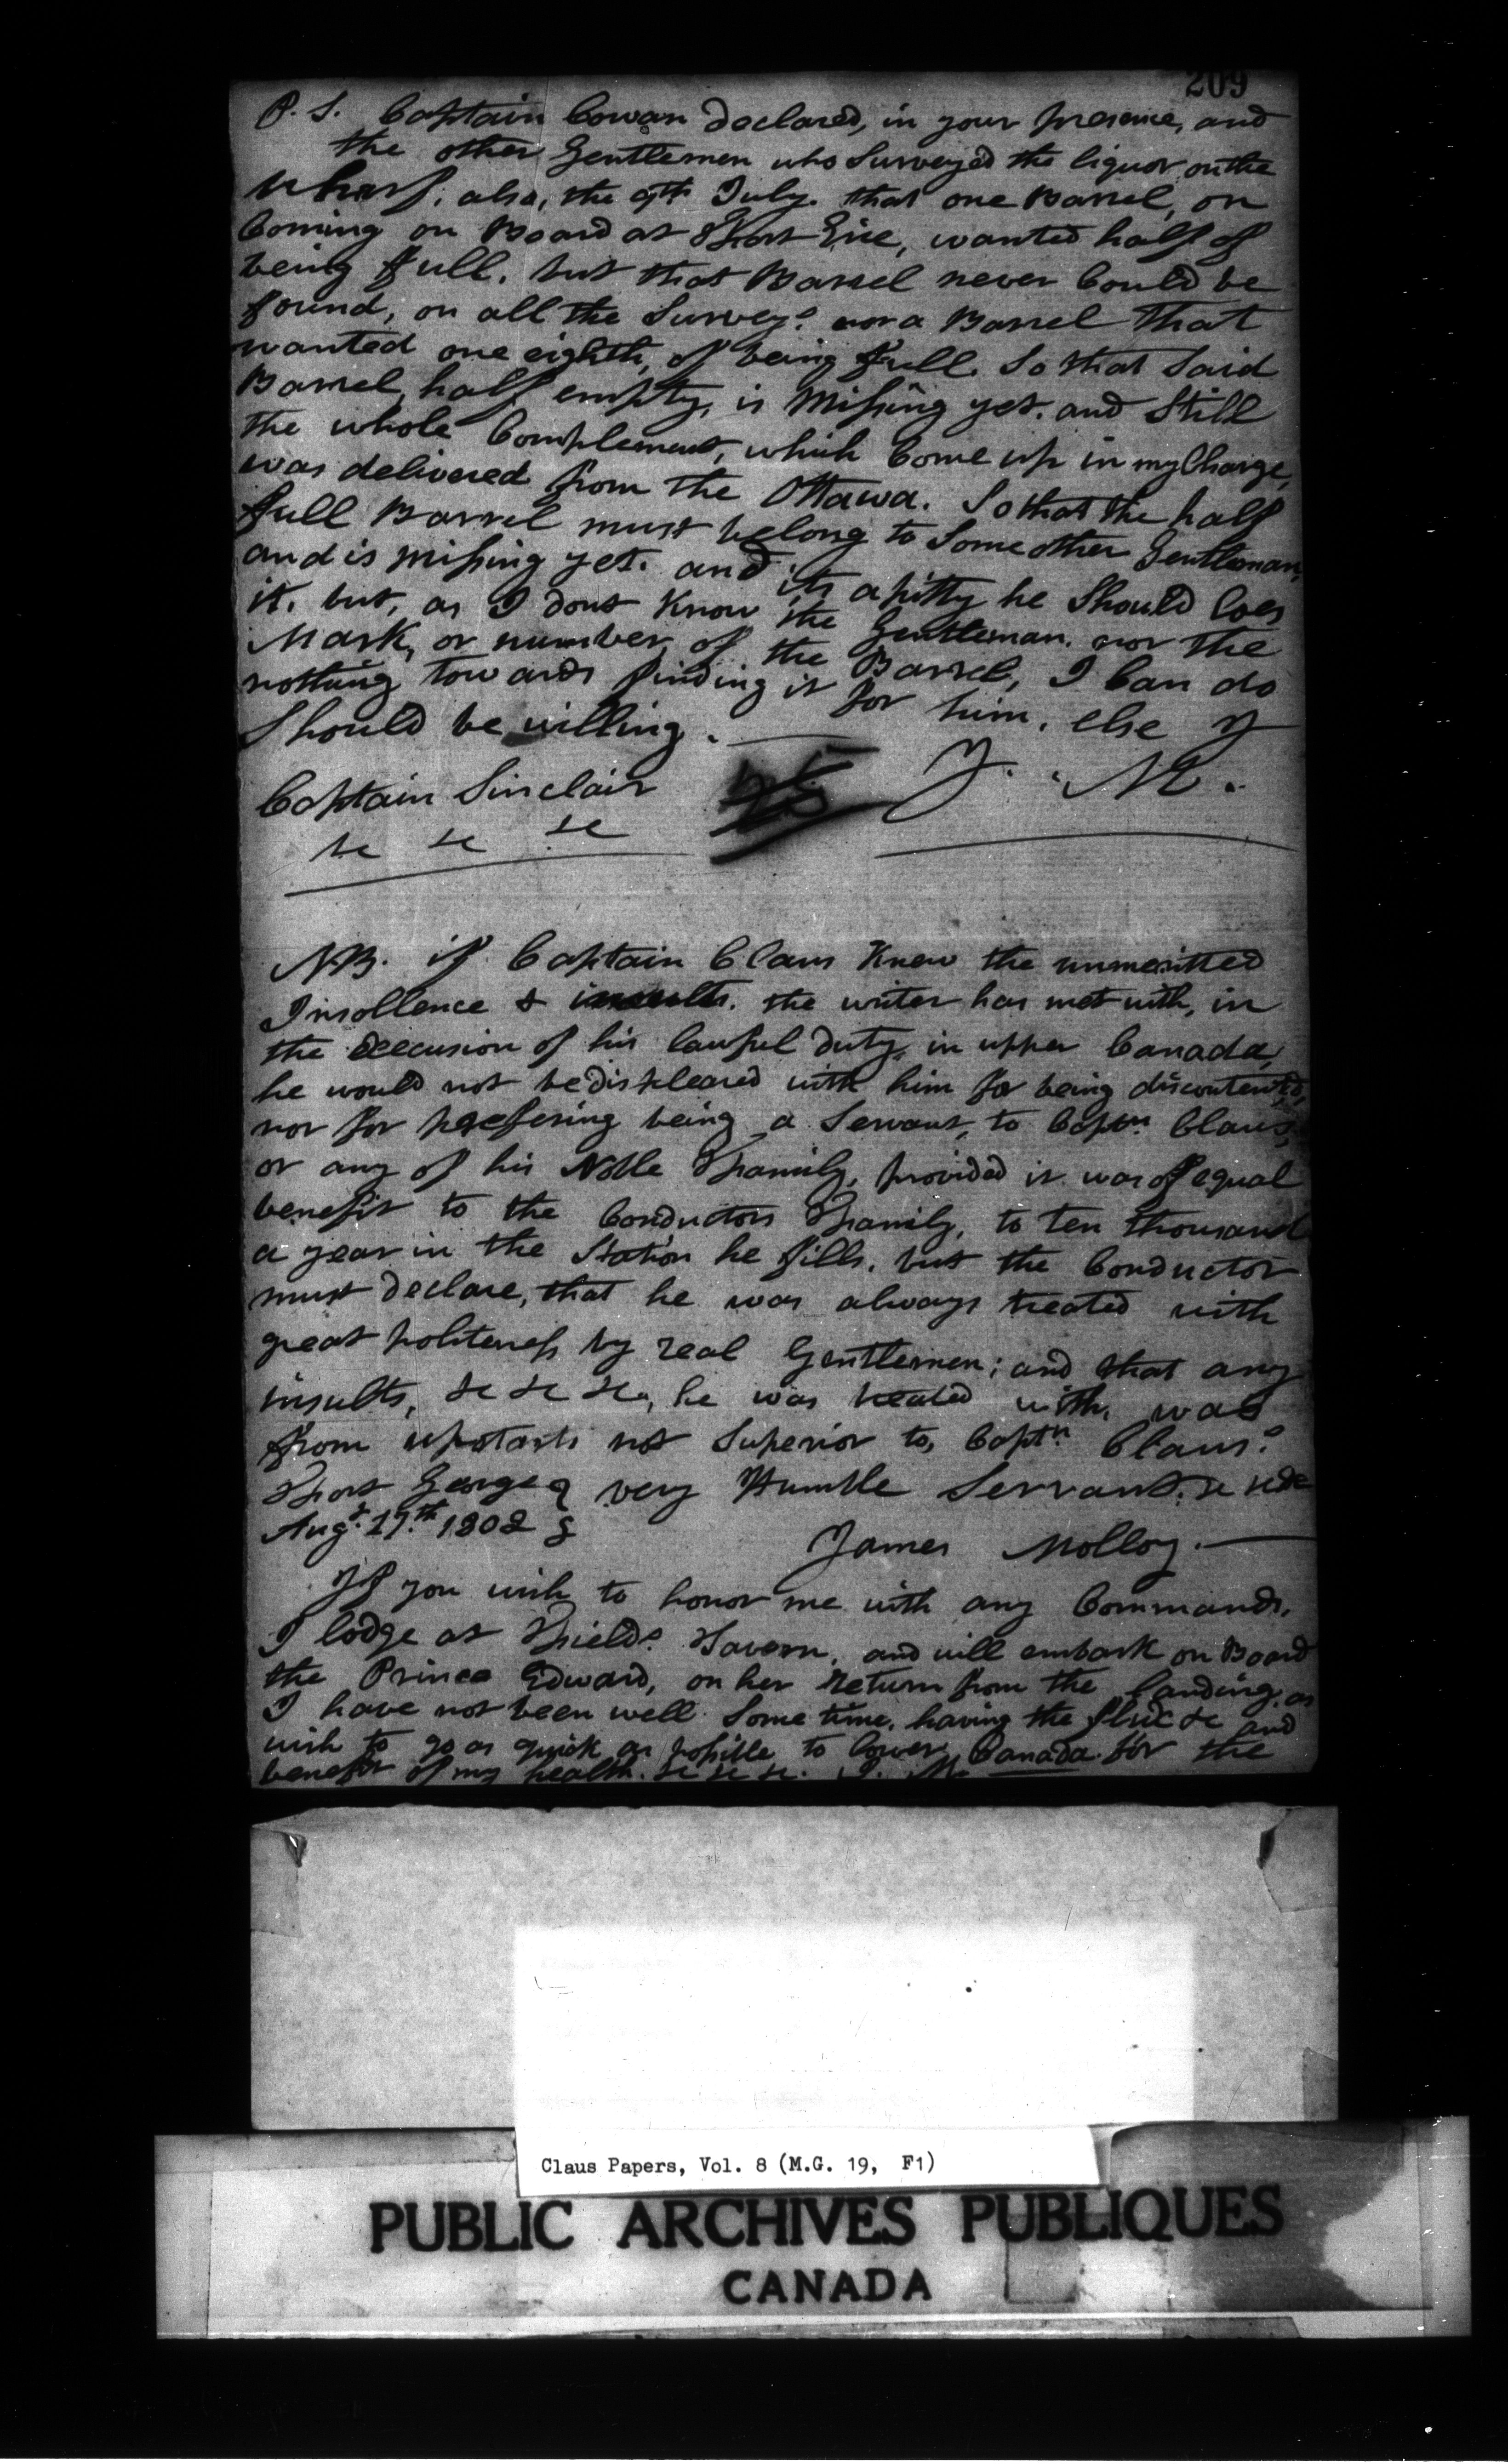 209
P. S. Captain Cowan declared, in your presence, and
the other Gentlemen who Surveyed the liquor on the
Wharf, also, the 9th July. that one Barrel, on
Coming on Board at Fort Erie, wanted half of
being full. but that Barrel never Could be
found, on all the Surveys. nor a Barrel that
wanted one eighth, of being full. So that Said
Barrel, half empty, is Missing yet. and Still
the whole Complement, which Come up in my Charge,
was delivered from the Ottawa. So that the half
full Barrel must belong to Some other Gentleman,
and is missing yet. and its a pitty he Should loes
it. but, as I dont Know the Gentleman. nor the
Mark, or number of the Barrel, I Can do
nothing towards finding it for him. else I
Should be willing.
Captain Sinclair J. M.
&c &c &c
NB. if Captain Claus Knew the unmeritted
Insollence & insults. the writer has met with, in
the Execusion of his lawful duty, in upper Canada,
he would not be displeased with him for being discontented,
nor for preffering being a Servant, to Captn. Claus,
or any of his Noble Family, provided it was of equal
benefit to the Conductors Family, to ten thousand
a year in the Station he fills. but the Conductor
must declare, that he was always treated with
great politeness by real Gentlemen; and that any
insults, &c &c &c, he was treated with, was
from upstarts not Superior to, Captn. Claus's
Fort George very Humble Servant. &c &c &c
Augt. 17.th 1802
James Molloy.
If you wish to honor me with any Commands,
I lodge at Fields. Tavern, and will embark on Board
the Prince Edward, on her return from the landing, as
I have not been well Some time, having the flux &c and
wish to go as quick as possible to lower Canada for the
benefit of my health. &c &c &c. J. M.
Claus Papers, Vol. 8 (M.G. 19, F1)
PUBLIC ARCHIVES PUBLIQUES
CANADA